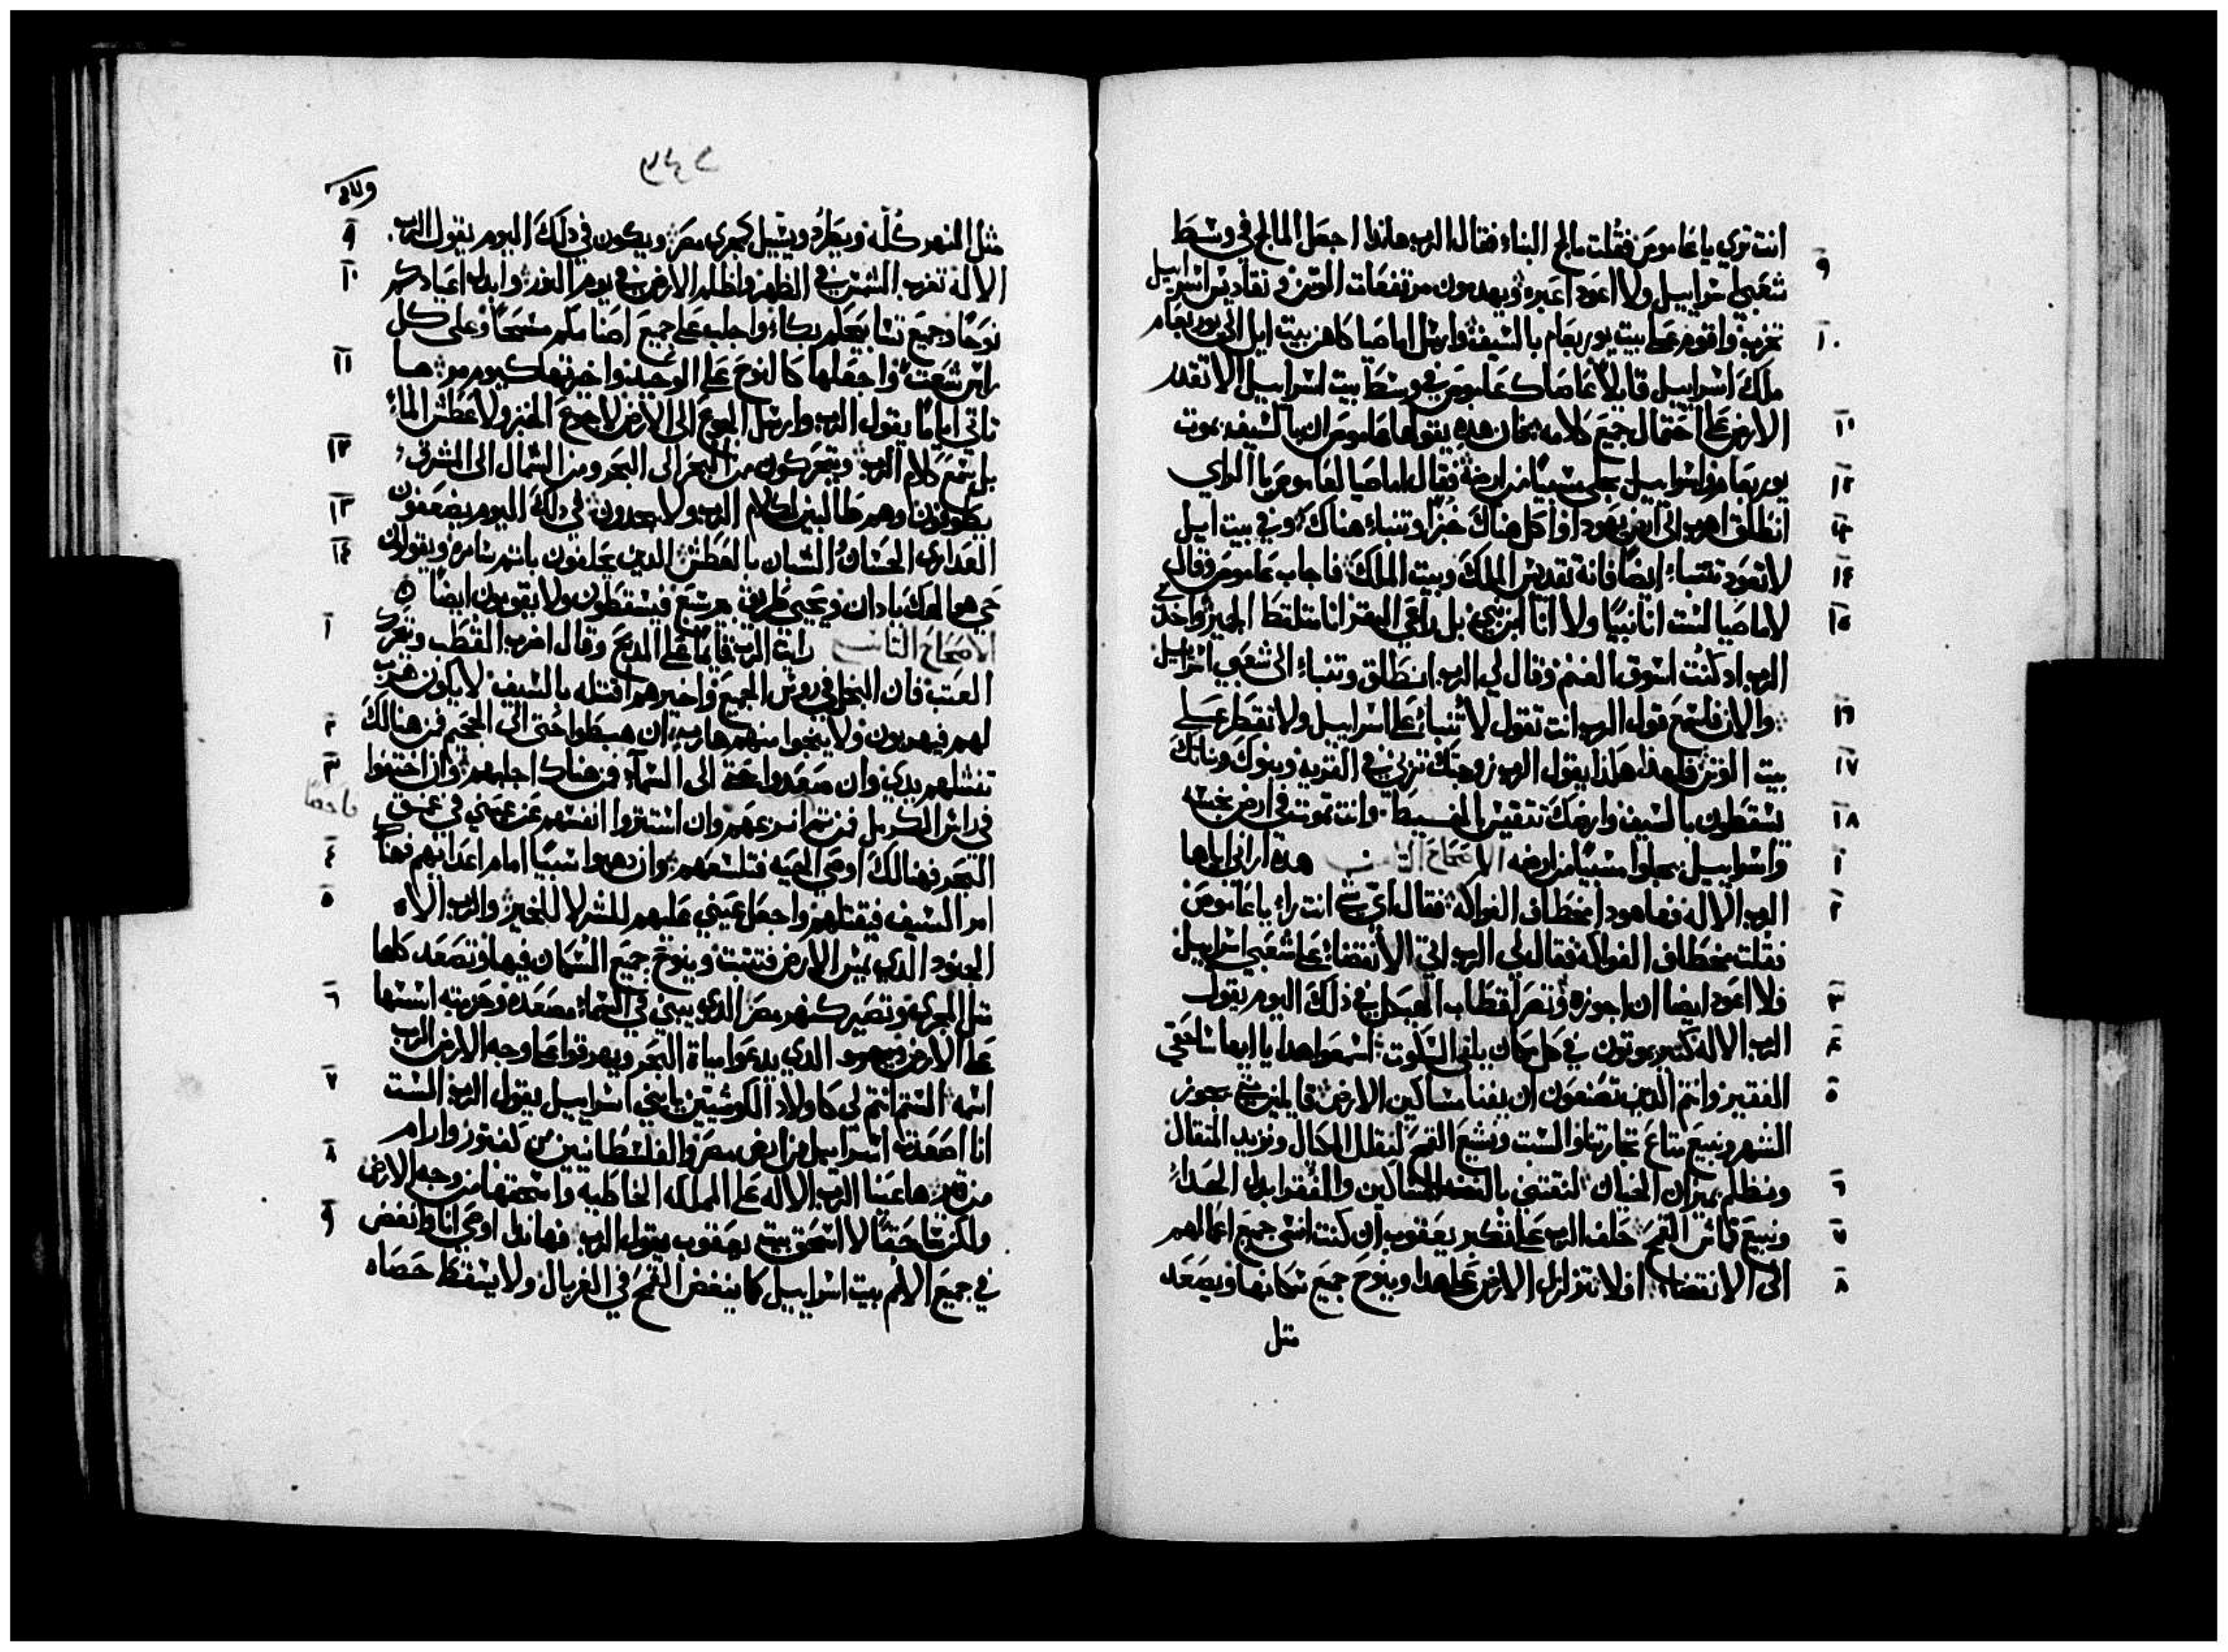 انت تري يا عاموص فقلت مالج البناء فقال الرب هانذا اجعل المالج في وسط
٩
شعبي اسراييل ولا اعود اعبره ويهدمون مرتفعات الوثن وتقاديس اسراييل
تخرب واقوم على بيت يوربعام بالسيف وارسل اماصيا كاهن بيت ايل الى يوربعام
١٠
ملك اسراييل قايلا عاصاك عاموص في وسط بيت اسراييل لا تقدر
الارض على احتمال جميع كلامه فان هذه يقولها عاموص ان بالسيف يموت
١١
يوربعام واسراييل يجلى مسبيا من ارضه فقال اماصيا لعاموص يا الراي
١٢
انطلق اهرب الى ارض يهودا وكل هناك خبزا وتنباء هناك وفي بيت ايل
١٣
لا تعود تتنباء ايضا فانه تقديس الملك وبيت الملك فاجاب عاموص وقال
١٤
لاماصيا لست انا نبيا ولا انا ابن نبي بل راعي البقر انا متلقط الجميز واخذني
١٥
الرب اذ كنت اسوق الغنم وقال لي الرب انطلق وتنباء الى شعبي اسراييل
والان فاسمع قول الرب انت تقول لا تتنباء على اسراييل ولا تقطر على
١٦
بيت الوثن فلهذا هكذا يقول الرب زوجتك تزني في القريه وبنوك وبناتك
١٧
يسقطون بالسيف وارضك تنقس بالقسيط وانت تموت في ارض نجسه
١٨
واسراييل يجلوا مسبيا من ارضه الاصحاح الثامن هذه اراني اياها
١
الرب الاله فها هوذا مخطاف الفواكه فقال اي شي انت راء يا عاموص
٢
فقلت مخطاف الفواكه فقال لي الرب اتى الانقضاء على شعبي اسراييل
فلا اعود ايضا ان اجوزه وتصر اقطاب الهيكل في ذلك اليوم يقول
٣
الرب الاله كثير يموتون في كل مكان يلقى السكوت اسمعوا هذا يا ايها ساحقي
٤
الفقير وانتم الذين تصنعون ان يفنا مساكين الارض قايلين متى يجوز
٥
الشهر ونبيع متاع تجارتنا والسبت ونشبع القمح لنقلل المكيال ونزيد المثقال
ونظلم بميزان الخيانه لنقتني بالفضه المساكين والفقرا بدل الحداء
٦
ونبيع قمائش القمح حلف الرب على تكبر يعقوب ان كنت انسى جميع اعمالهم
٧
الى الانقضاء افلا تتزلزل الارض على هذا وينوح جميع سكانها ويصعد
٨
مثل
مثل النهر كله ويطرد ويسيل كمجرى مصر ويكون في ذلك اليوم يقول الرب
٩
الاله تغرب الشمس في الظهر واظلم الارض في يوم النور وابدل اعيادكم
١٠
نوحا وجميع تسابيحكم بكاء واجلب على جميع اصلابكم مسحا وعلى كل
راس شعث واجعلها كالنوح على الوحيد واخرتها كيوم مر ها
١١
تاتي ايام يقول الرب وارسل الجوع الى الارض لا جوع الخبز ولا عطش الماء
بل يسمع كلام الرب ويتحركون من البحر الى البحر ومن الشمال الى المشرق
١٢
يطوفون وهم طالبين كلام الرب ولا يجدون في ذلك اليوم يضعفون
١٣
العذارى الحسان والشبان بالعطش الذين يحلفون باثم سامره ويقولون
١٤
حي هو الهك يا دان ويحيى طريق بير سبع فيسقطون ولا يقومون ايضا ٥
الاصحاح التاسع رايت الرب قايما على المذبح وقال اضرب القطب وتتحرك
١
العتب فان البخل في روس الجميع واخيرهم اقتله بالسيف لا يكون هرب
لهم فيهربون ولا ينجوا منهم هارب ان هبطوا حتى الى الجحيم فمن هنالك
٢
تنشلهم يدي وان صعدوا حتى الى السماء فمن هناك اجلبهم وان اختفوا
٣
في راس الكرمل فمن ثم انزعهم وان استتروا انفسهم عن عيني في عمق
البحر فهنالك اوصي الحيه فتلسعهم وان ذهبوا سبيا امام اعدايهم فهناك
٤
امر السيف فيقتلهم واجعل عيني عليهم للشر لا للخير والرب الاله
٥
الجنود الذي يمس الارض فتتفتت وينوح جميع السكان فيها وتصعد كلها
مثل المجرى وتصير كنهر مصر الذي يبني في السماء مصعده وحزمته اسسها
٦
على الارض الذي يدعوا مياة البحر ويهرقوا على وجه الارض الرب
اسمه الستم انتم لي كاولاد الكوشيين يا بني اسراييل يقول الرب الست
٧
انا اصعدت اسراييل من ارض مصر والفلسطانيين من كفتور وارام
من قيرين ها عينا الرب الاله على المملكه الخاطيه واسحقها من وجه الارض
٨
ولكن سحقا لا اسحق بيت يعقوب يقول الرب فهانذا اوصي انا وانفض
٩
في جميع الامم بيت اسراييل كما ينفض القمح في الغربال ولا يسقط حصاه